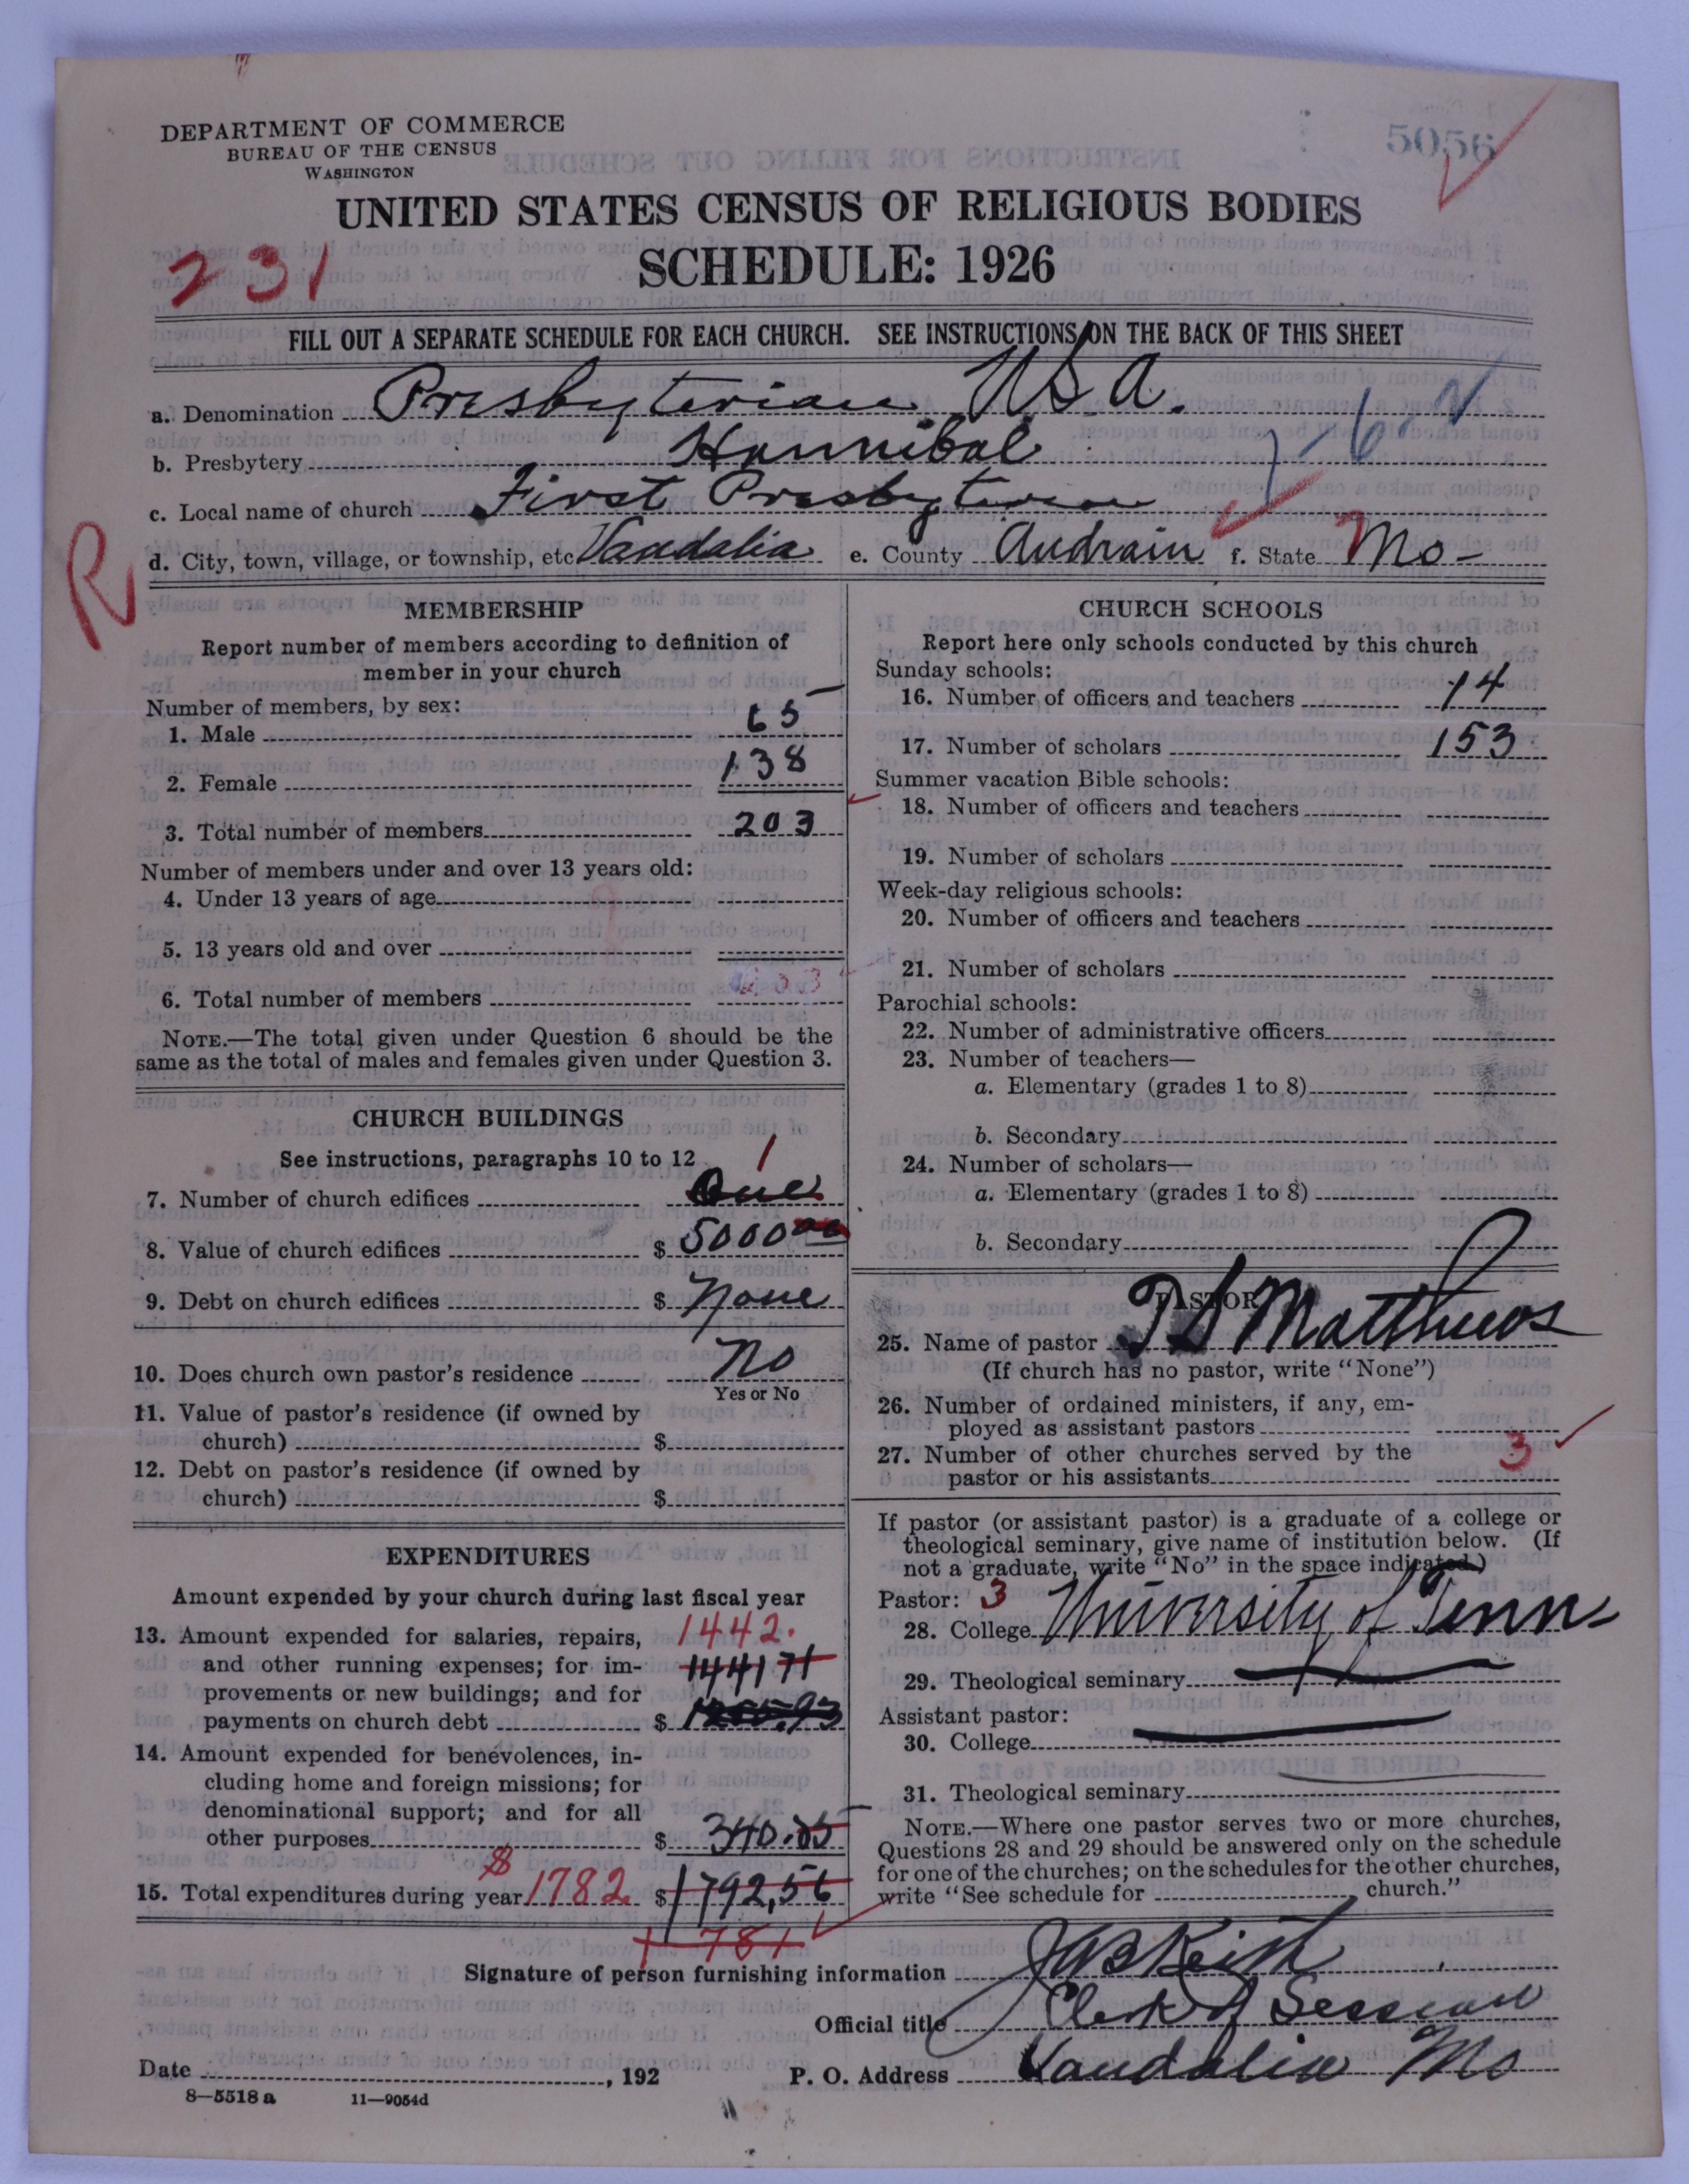 DEPARTMENT OF COMMERCE
BUREAU OF THE CENSUS
WASHINGTON
5056
UNITED STATES CENSUS OF RELIGIOUS BODIES
SCHEDULE: 1926
231
FILL OUT A SEPARATE SCHEDULE FOR EACH CHURCH. SEE INSTRUCTIONS ON THE BACK OF THIS SHEET
a. Denomination Presbyterian USA.
b. Presbytery Hannibal
c. Local name of church First Presbyterian
R
d. City, town, village, or township, etc Vandalia e. County Audrain f. State Mo-
MEMBERSHIP
Report number of members according to definition of
member in your church
Number of members, by sex:
1. Male 65
2. Female 138
3. Total number of members 203
Number of members under and over 13 years old:
4. Under 13 years of age
5. 13 years old and over
6. Total number of members 203
NOTE.—The total given under Question 6 should be the
same as the total of males and females given under Question 3.
CHURCH BUILDINGS
See instructions, paragraphs 10 to 12
1
7. Number of church edifices One
8. Value of church edifices $ 5000 00
9. Debt on church edifices $ None
10. Does church own pastor's residence No
Yes or No
11. Value of pastor's residence (if owned by
church) $
12. Debt on pastor's residence (if owned by
church) $
EXPENDITURES
Amount expended by your church during last fiscal year
13. Amount expended for salaries, repairs, 1442.
and other running expenses; for im- 1441 71
provements or new buildings; and for
payments on church debt $
14. Amount expended for benevolences, in-
cluding home and foreign missions; for
denominational support; and for all
other purposes $ 340.85
15. Total expenditures during year $ 1782. $ 1792,56
1781
CHURCH SCHOOLS
Report here only schools conducted by this church
Sunday schools:
16. Number of officers and teachers 14
17. Number of scholars 153
Summer vacation Bible schools:
18. Number of officers and teachers
19. Number of scholars
Week-day religious schools:
20. Number of officers and teachers
21. Number of scholars
Parochial schools:
22. Number of administrative officers
23. Number of teachers—
a. Elementary (grades 1 to 8)
b. Secondary
24. Number of scholars—
a. Elementary (grades 1 to 8)
b. Secondary
PASTOR
25. Name of pastor T S Matthews
(If church has no pastor, write "None")
26. Number of ordained ministers, if any, em-
ployed as assistant pastors
27. Number of other churches served by the
pastor or his assistants 3
If pastor (or assistant pastor) is a graduate of a college or
theological seminary, give name of institution below. (If
not a graduate, write "No" in the space indicated.)
Pastor: 3
28. College University of Tenn
29. Theological seminary
Assistant pastor:
30. College
31. Theological seminary
NOTE.—Where one pastor serves two or more churches,
Questions 28 and 29 should be answered only on the schedule
for one of the churches; on the schedules for the other churches,
write "See schedule for church."
Signature of person furnishing information J W B Keith
Official title Clerk of Session
Date , 192 P. O. Address Vandalia Mo
8—5518 a 11—9054d